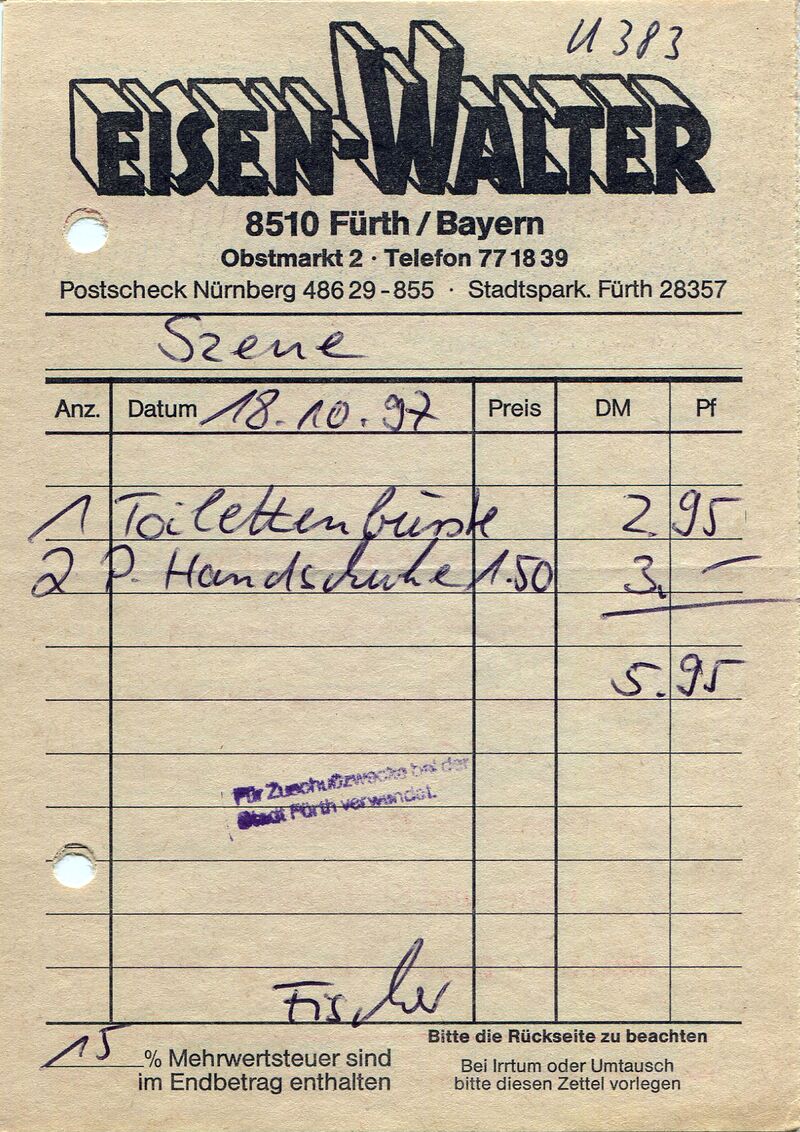 U 383
EISEN-WALTER
8510 Fürth / Bayern
Obstmarkt 2 · Telefon 77 18 39
Postscheck Nürnberg 486 29 - 855 · Stadtspark. Fürth 28357
Szene
Anz. Datum 18.10.97 Preis DM Pf
1 Toilettenbürste 2.95
2 P. Handschuhe 1.50 3.–
5.95
Für Zuschußzwecke bei der
Stadt Fürth verwendet.
Fischer
Bitte die Rückseite zu beachten
15 % Mehrwertsteuer sind
im Endbetrag enthalten
Bei Irrtum oder Umtausch
bitte diesen Zettel vorlegen